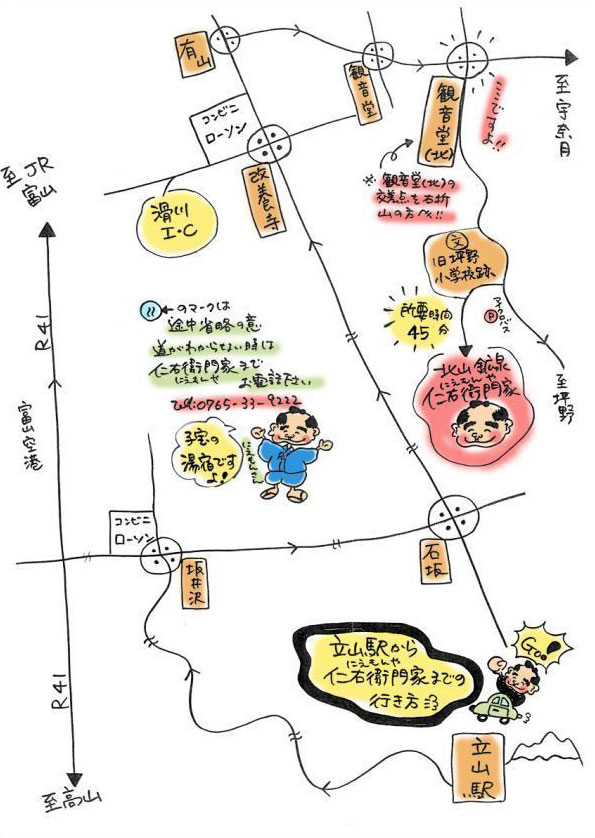 有山
観音堂
観音堂(北)
ここですよ!!
至宇奈月
コンビニ
ローソン
改養寺
至JR
富山
滑川
I・C
※観音堂(北)の
交差点を右折
山の方へ!!
文
旧坪野
小学校跡
所要時間
45分
P
マイクロバス
至坪野
北山鉱泉
にえもんや
仁右衛門家
←のマークは
途中省略の意
道がわからない時は
仁右衛門家まで
にえもんや
お電話下さい
TEL:0765-33-9222
子宝の
湯宿です
よ!
にえもんさん
R41
富山空港
コンビニ
ローソン
坂井沢
石坂
Go!
立山駅から
にえもんや
仁右衛門家までの
行き方
立山駅
R41
至高山